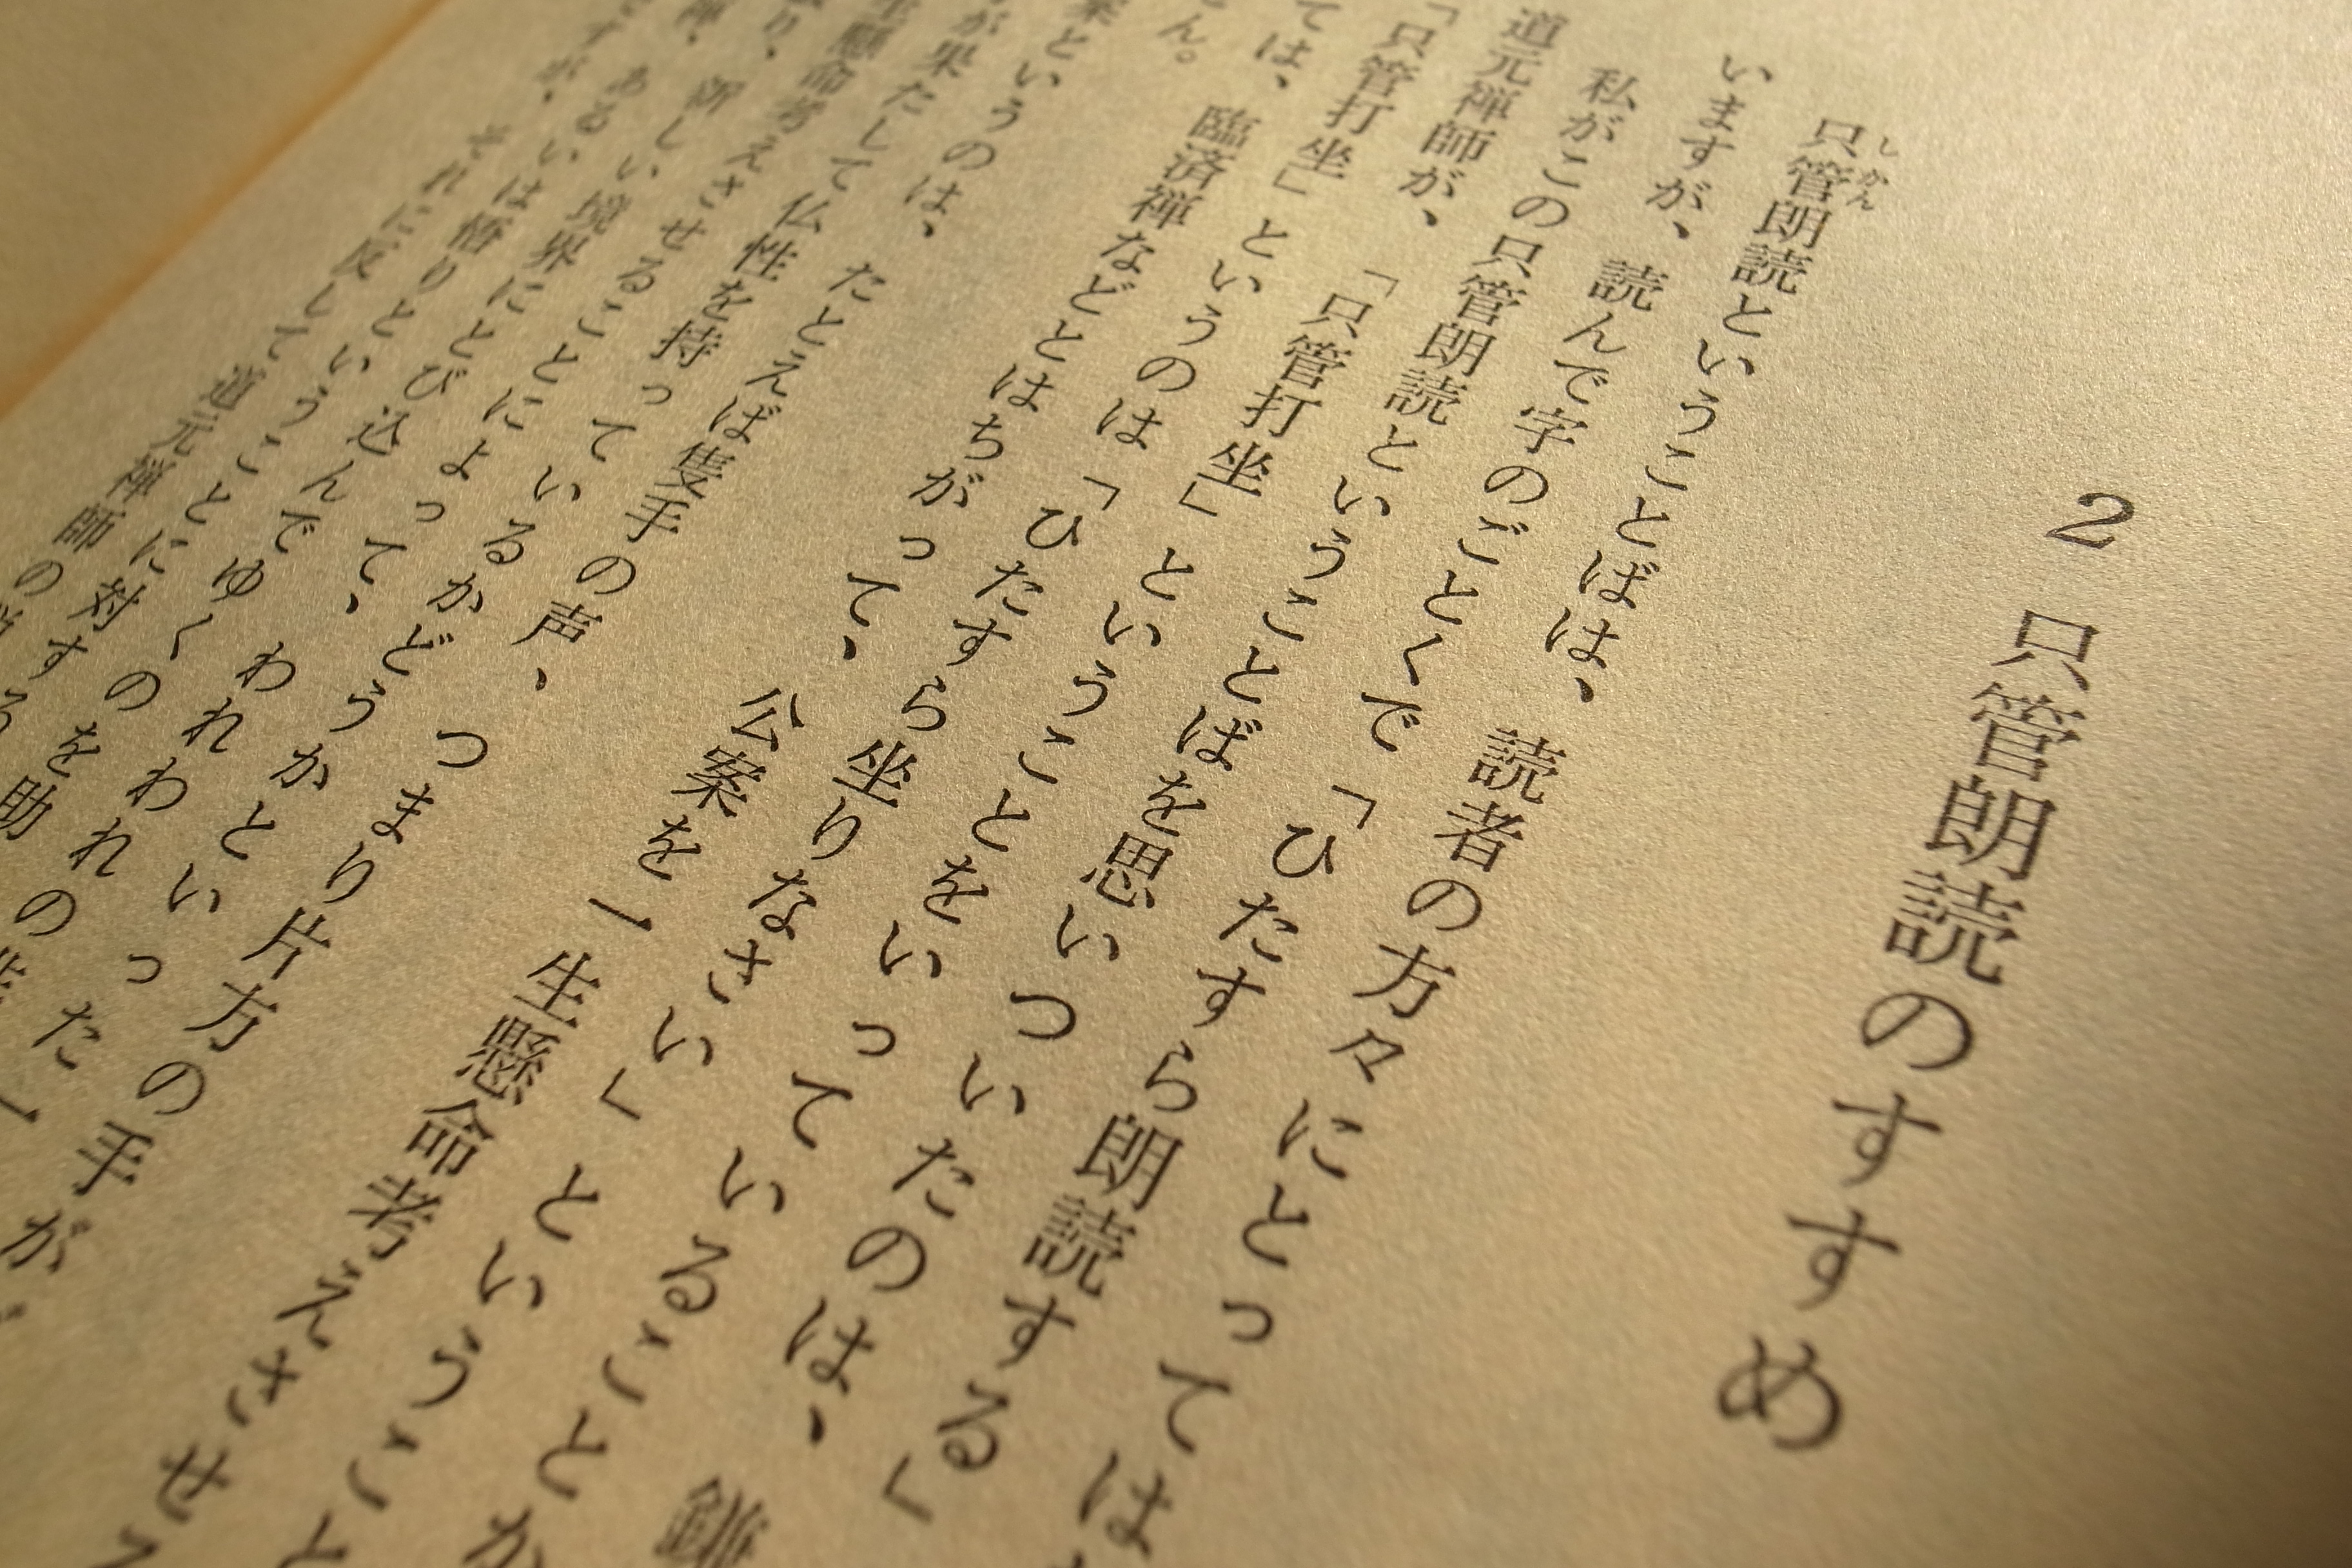 2 只管朗読のすすめ
只管朗読ということばは、読者の方々にとっては
しかん
いますが、読んで字のごとくで「ひたすら朗読する」
私がこの只管朗読ということばを思いついたのは、鎌
道元禅師が、「只管打坐」ということをいっていることか
「只管打坐」というのは「ひたすら坐りなさい」ということ
ては、臨済禅などとはちがって、公案を一生懸命考えさせ
せん。
案というのは、たとえば隻手の声、つまり片方の手が
が果たして仏性を持っているかどうかといった
生懸命考えさせることによって、われわれの
り、新しい境界にとび込んでゆくのを助
禅、あるいは悟りということに対する
ですが、それに反して道元禅師の